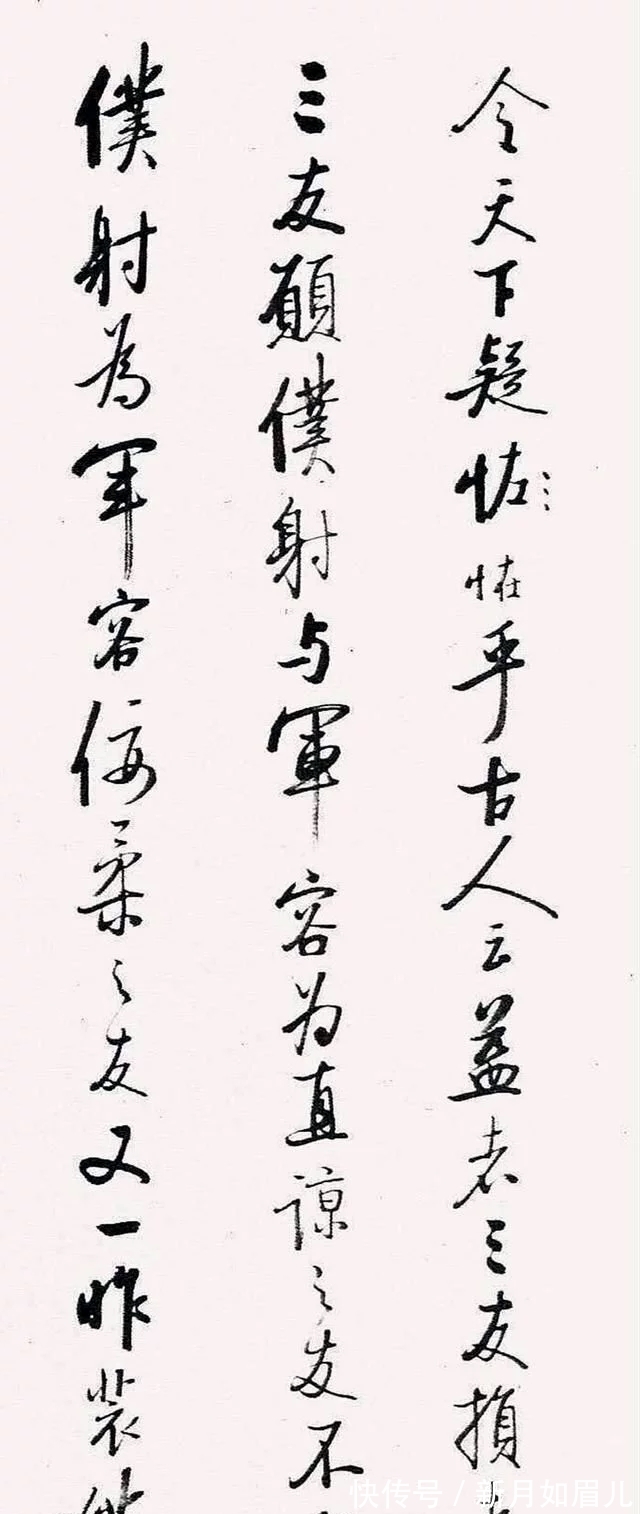 令天下疑恠乎古人云益者三友損
三友願僕射与軍容为直諒之友不
僕射為軍容佞柔之友又一昨裴
快传号 / 新月如眉儿